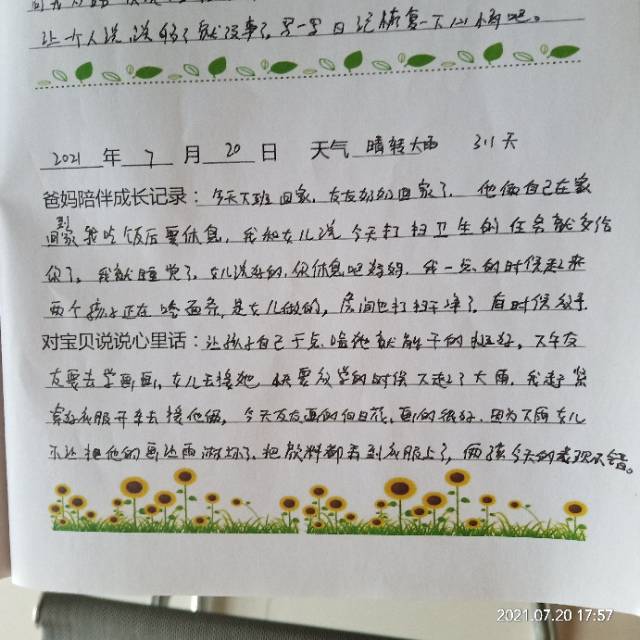 让大人说,说够了就没事了,写一写日记恢复一下心情吧。
2021年7月20日 天气 晴转大雨 311天
爸妈陪伴成长记录:今天下班回家,友友奶奶回家了,他俩自己在家
到回家我吃饭后要休息,我和女儿说今天打扫卫生的任务就交给
你了,我就睡觉了,女儿说好的,你休息吧妈妈,我一点的时候起来
两个孩子正在吃面条,是女儿做的,房间也打扫干净了,有时候放手
对宝贝说说心里话:让孩子自己干点啥他就能干的挺好,下午友
友要去学画画,女儿去接他 快要放学的时候下起了大雨,我赶紧
穿好衣服开车去接他俩,今天友友画的向日葵,画的很好,因为下雨女儿
不让把他的画让雨淋坏了,把饮料都弄到衣服上了,两孩今天的表现不错。
2021.07.20 17:57